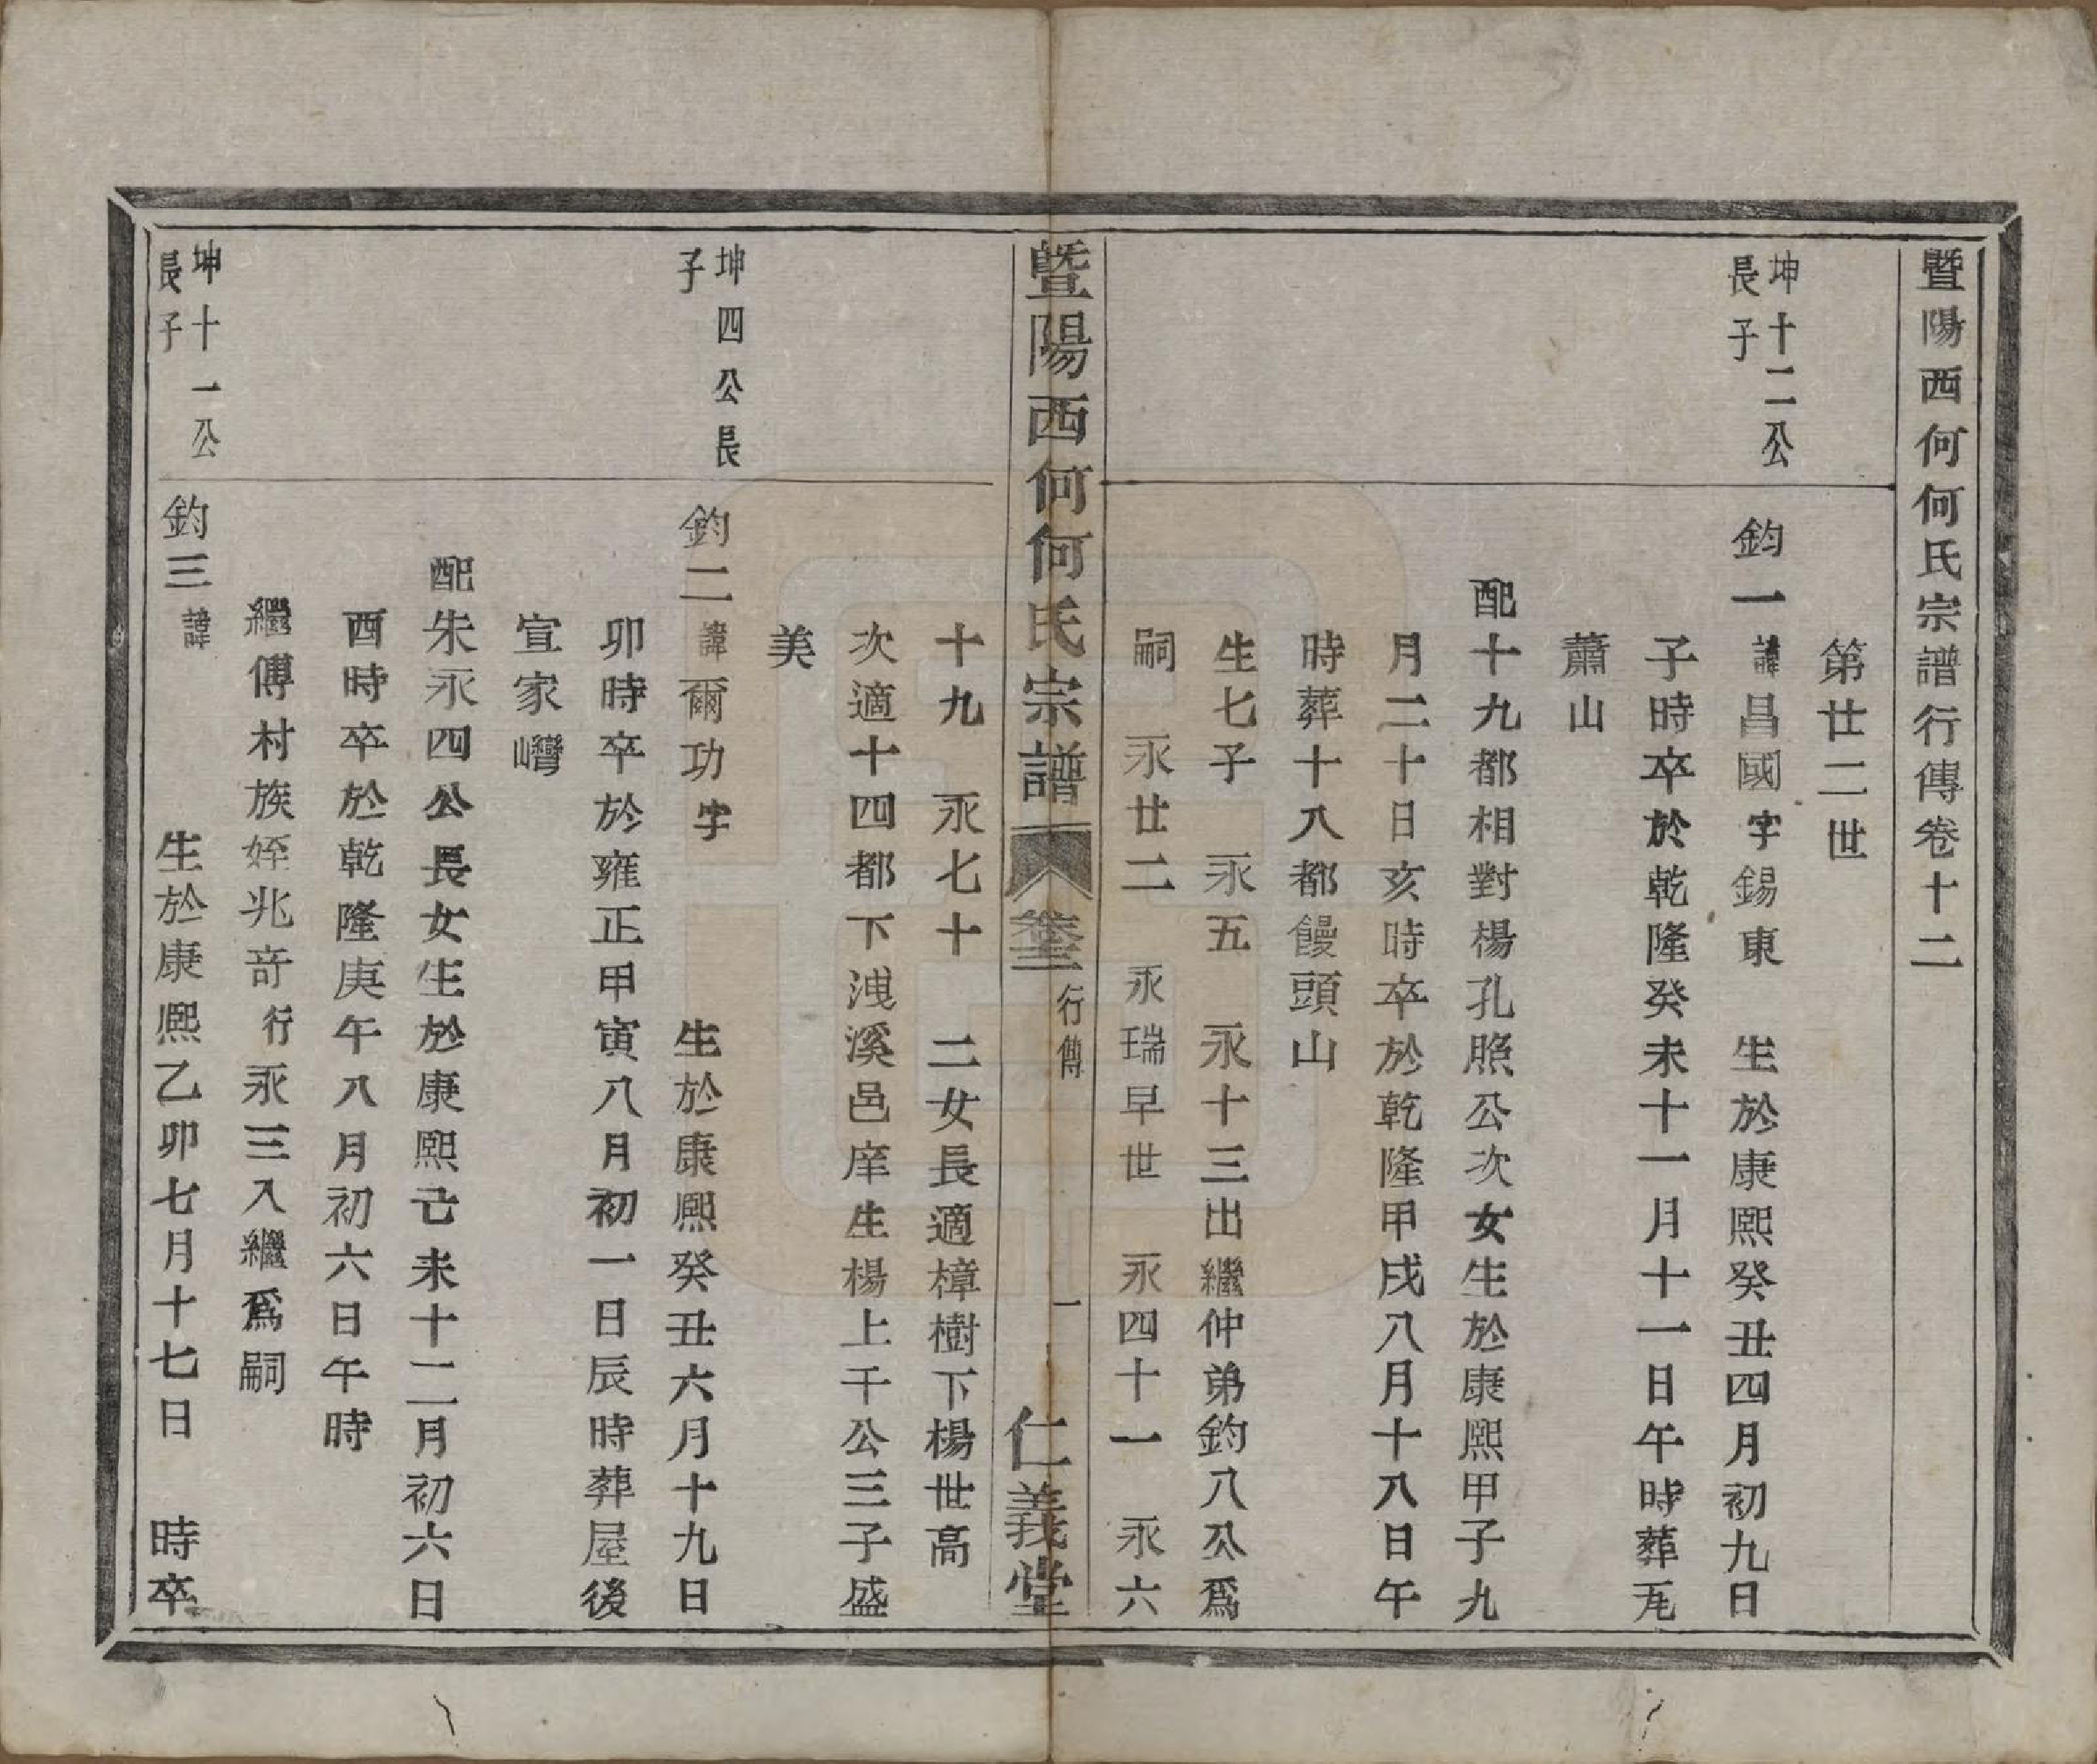 暨陽西何何氏宗譜行傳卷十二
第廿二世
坤十二公
長子
鈞一諱昌國字錫東 生於康熙癸丑四月初九日
子時卒於乾隆癸未十一月十一日午時葬旄
蕭山
配十九都相對楊孔照公次女生於康熙甲子九
月二十日亥時卒於乾隆甲戌八月十八日午
時葬十八都饅頭山
生七子 永五 永十三出繼仲弟鈞八公爲
嗣 永廿二 永瑞早世 永四十一 永六
暨陽西何何氏宗譜 卷十二 行傳 一 仁義堂
十九 永七十 二女長適樟樹下楊世高
次適十四都下洩溪邑庠生楊上千公三子盛
美
坤四公長
子
鈞二諱爾功字 生於康熙癸丑六月十九日
卯時卒於雍正甲寅八月初一日辰時葬屋後
宣家嶹
配朱永四公長女生於康熙己未十二月初六日
酉時卒於乾隆庚午八月初六日午時
繼傅村族姪兆奇行永三入繼爲嗣
坤十一公
長子
鈞三諱 生於康熙乙卯七月十七日 時卒